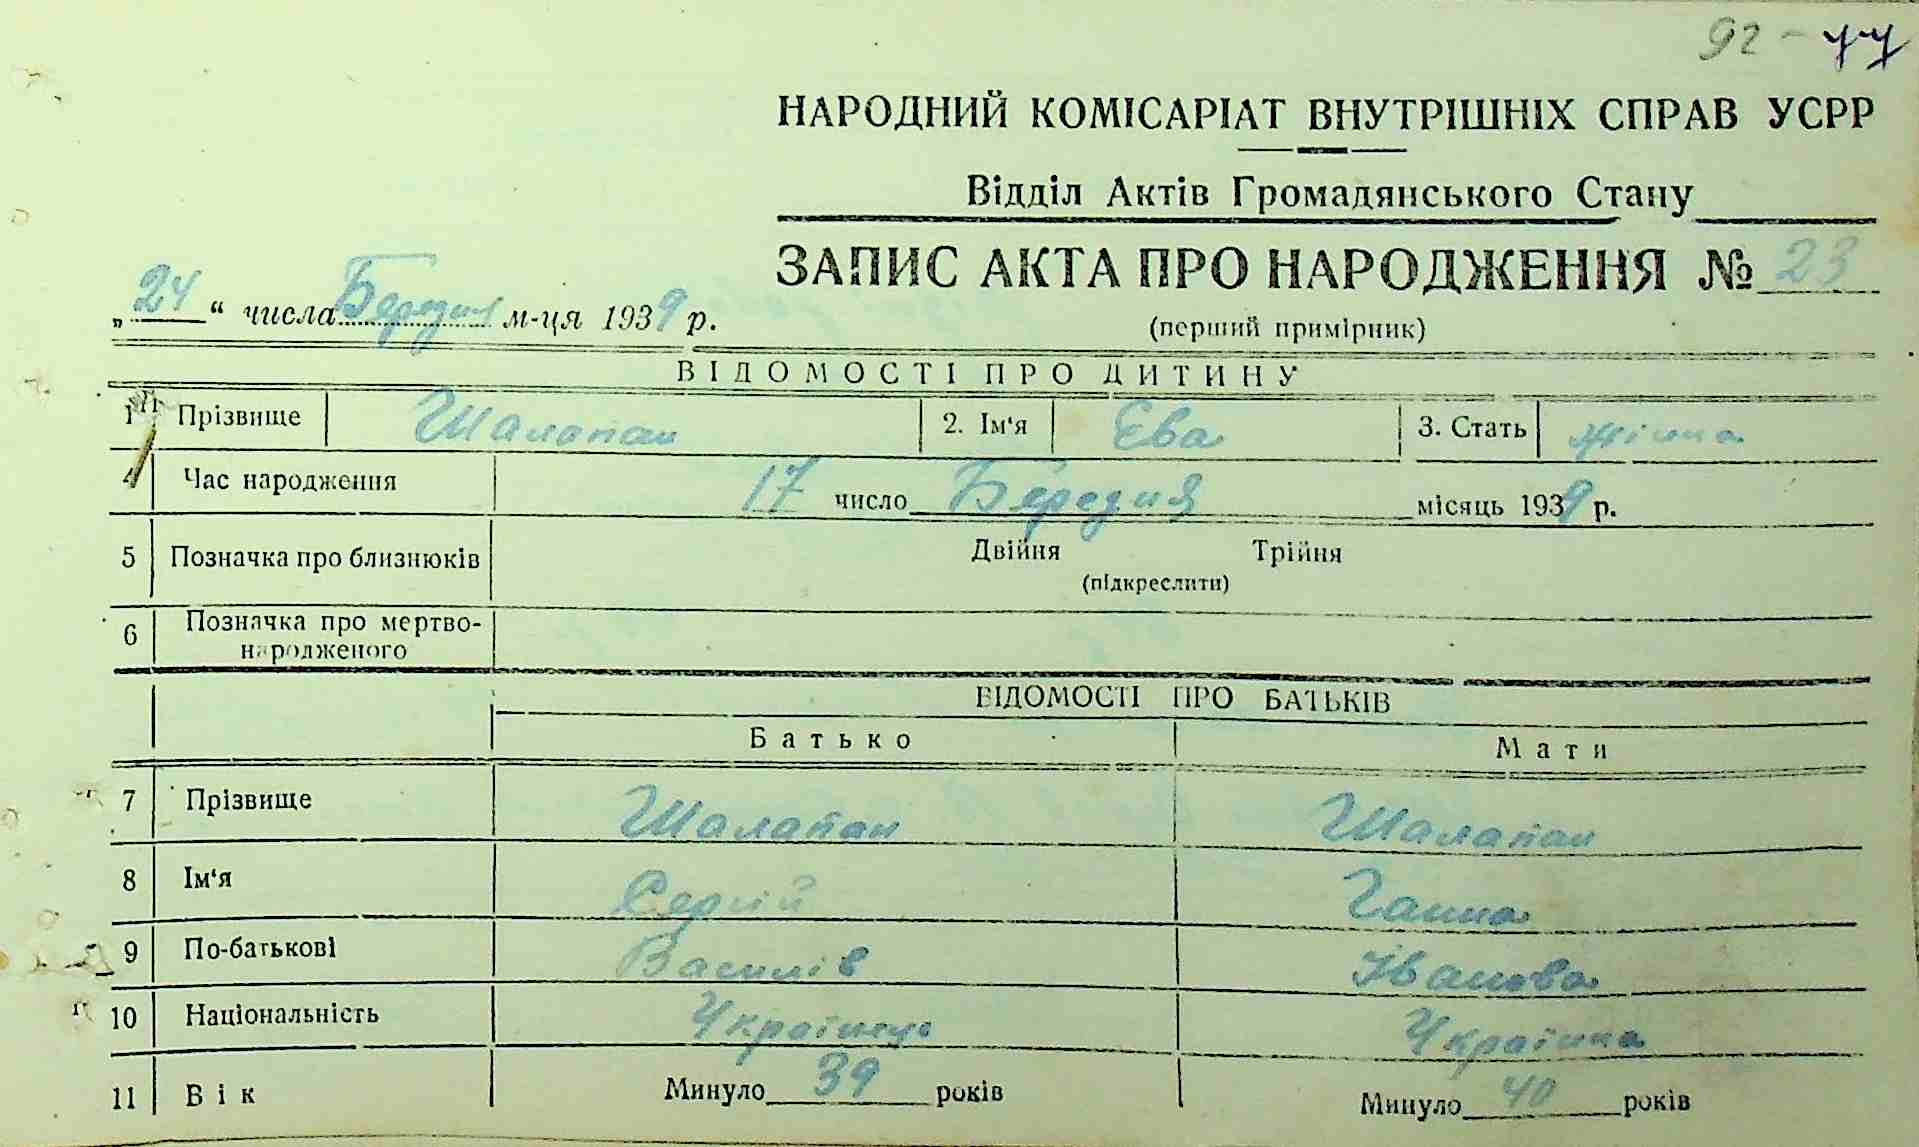 92 -
НАРОДНИЙ КОМІСАРІАТ ВНУТРІШНІХ СПРАВ УСРР
Відділ Актів Громадянського Стану
ЗАПИС АКТА ПРО НАРОДЖЕННЯ № 23
„24“ числа Березня м-ця 1939 р.
(перший примірник)
ВІДОМОСТІ ПРО ДИТИНУ
1 Прізвище Шалапан 2. Ім'я Єва 3. Стать жіноча
4 Час народження 17 число Березня місяць 1939 р.
5 Позначка про близнюків Двійня Трійня
(підкреслити)
6 Позначка про мертво-
народженого
ВІДОМОСТІ ПРО БАТЬКІВ
Батько Мати
7 Прізвище Шалапан Шалапан
8 Ім'я Сергій Ганна
9 По-батькові Василів Іванова
10 Національність Українець Українка
11 Вік Минуло 39 років Минуло 40 років